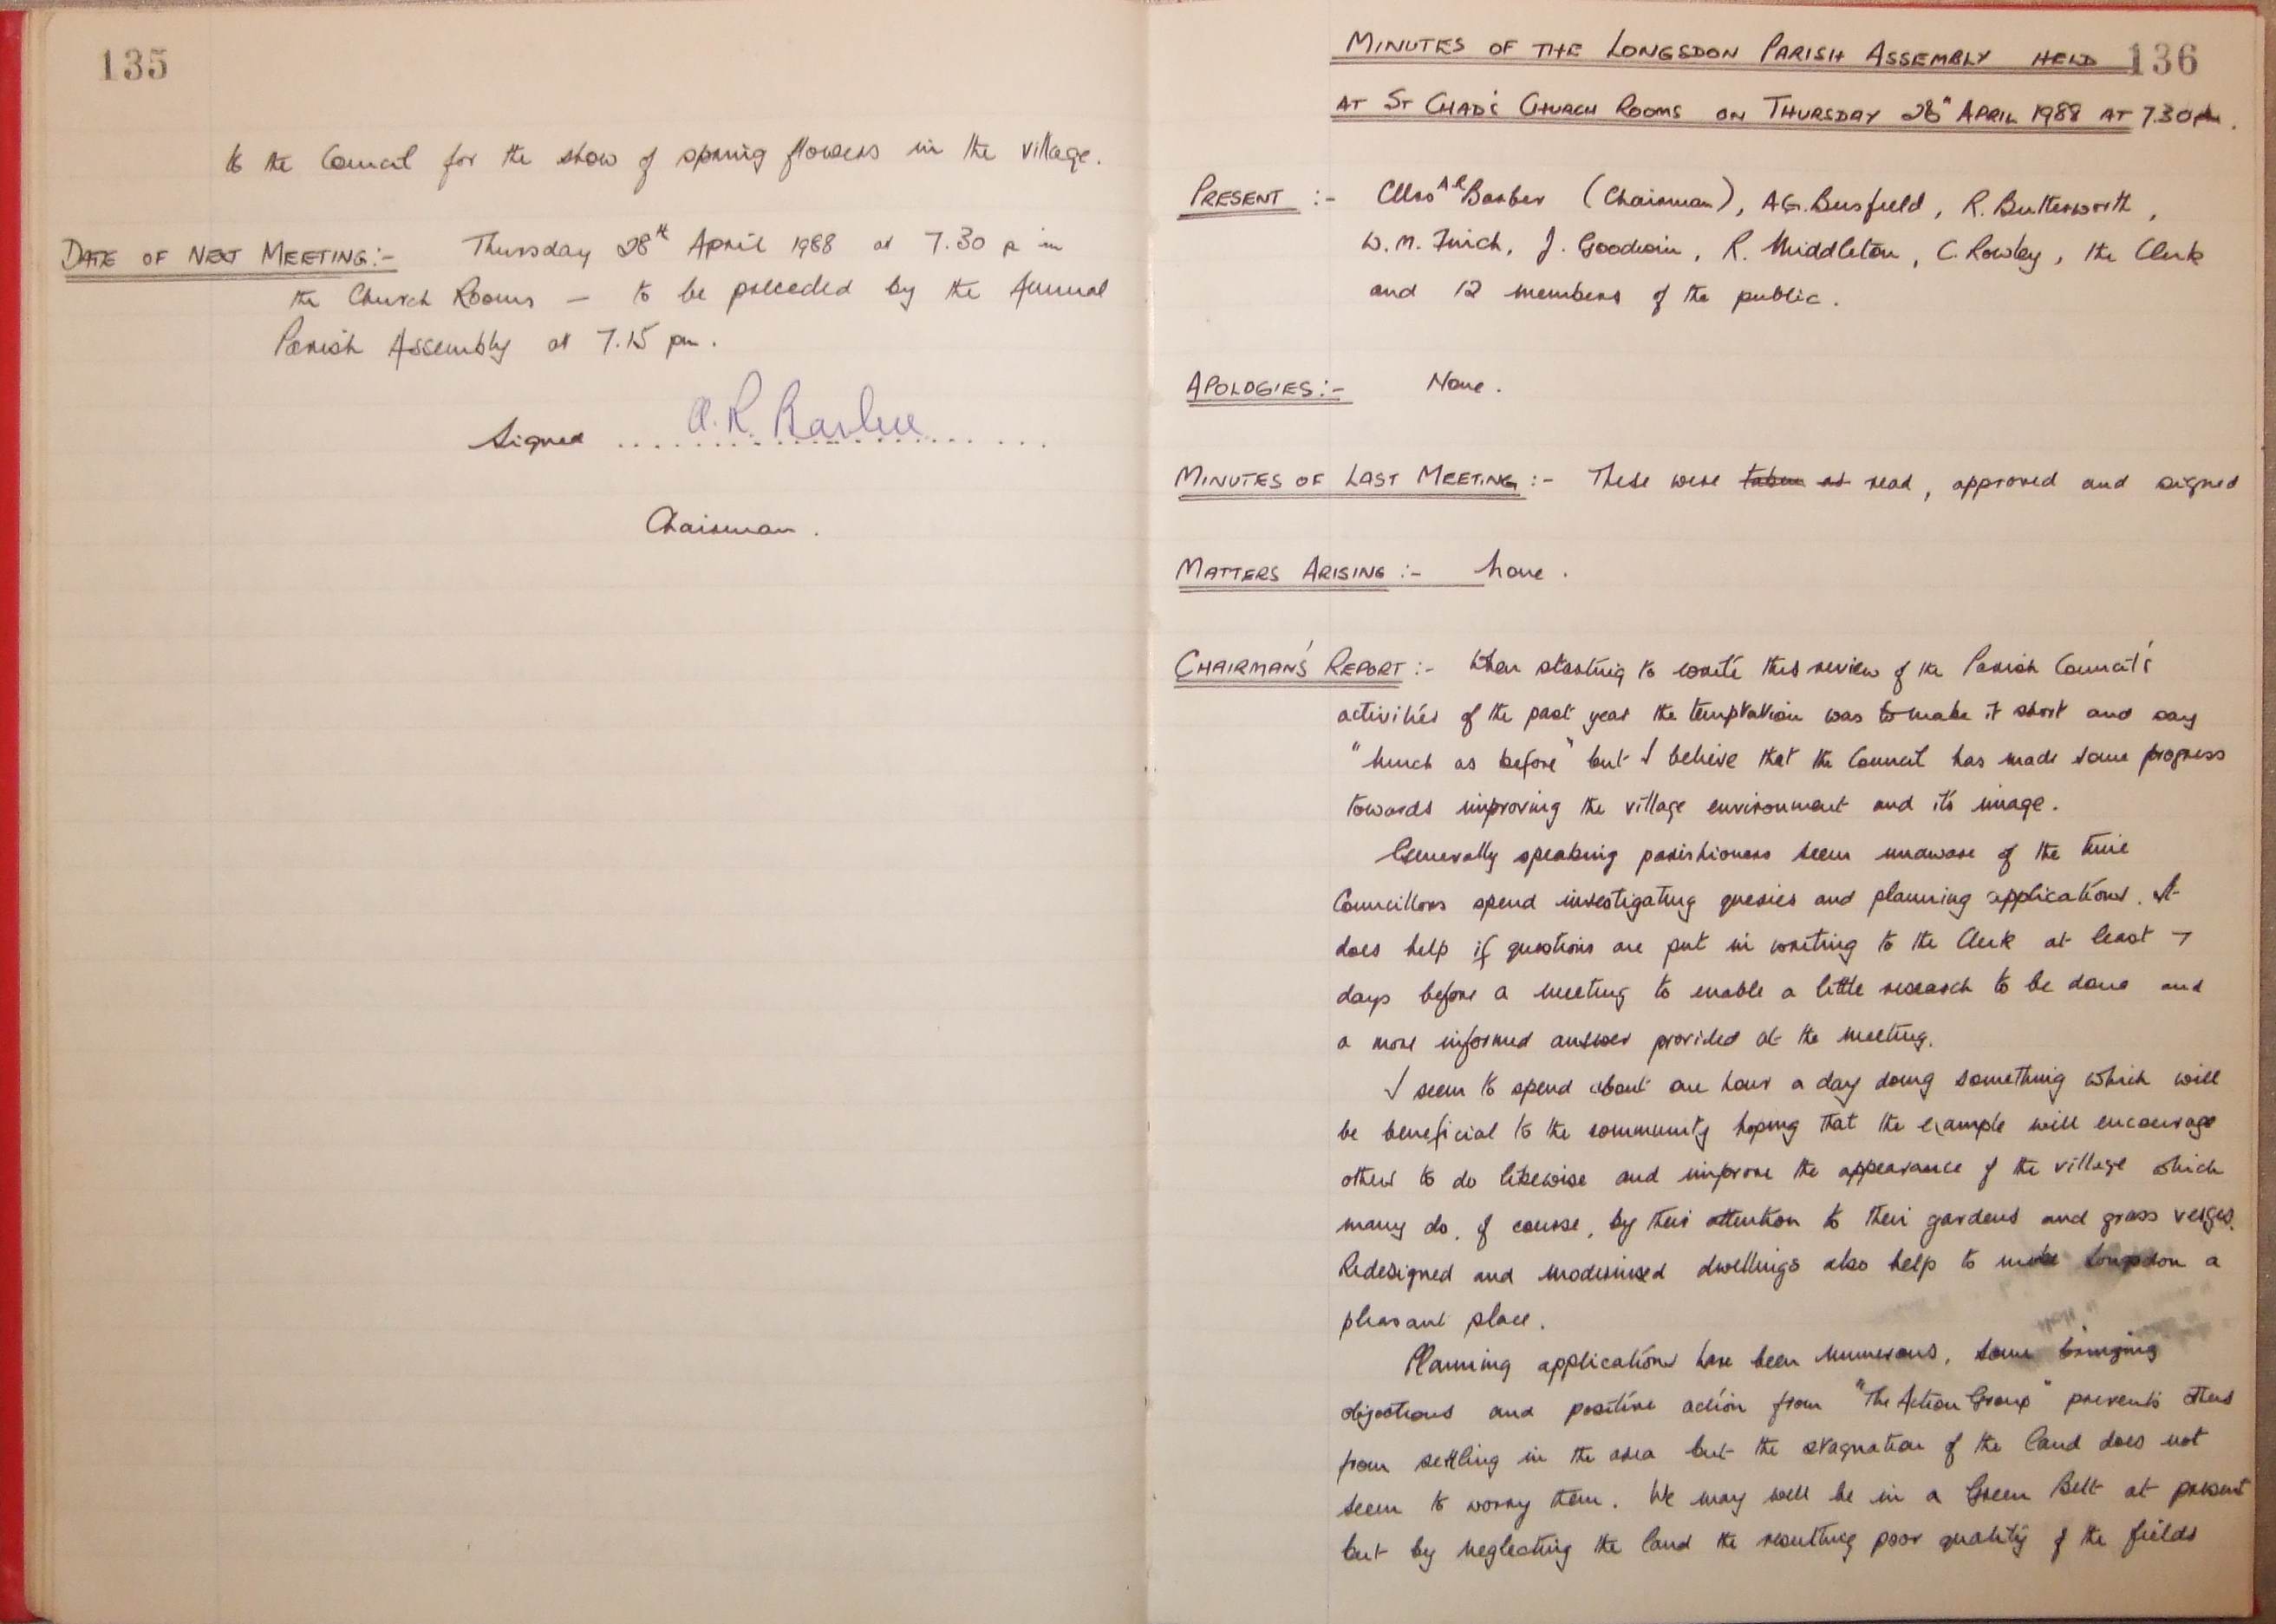 135
to the Council for the show of spring flowers in the village.
DATE OF NEXT MEETING:- Thursday 28th April 1988 at 7.30 p in
the Church Rooms — to be preceded by the Annual
Parish Assembly at 7.15 pm.
Signed A. R. Barber
Chairman.
136
MINUTES OF THE LONGSDON PARISH ASSEMBLY HELD
AT ST CHAD'S CHURCH ROOMS ON THURSDAY 28" APRIL 1988 AT 7.30pm.
PRESENT :- Cllrs AR Barber (Chairman), A.G. Busfield, R. Butterworth,
W. M. Finch, J. Goodwin, R. Middleton, C. Rowley, the Clerk
and 12 members of the public.
APOLOGIES:- None.
MINUTES OF LAST MEETING:- These were taken as read, approved and signed
MATTERS ARISING:- None.
CHAIRMAN'S REPORT:- When starting to write this review of the Parish Council's
activities of the past year the temptation was to make it short and say
"Much as before" but I believe that the Council has made some progress
towards improving the village environment and it's image.
Generally speaking parishioners seem unaware of the time
Councillors spend investigating queries and planning applications. It
does help if questions are put in writing to the Clerk at least 7
days before a meeting to enable a little research to be done and
a more informed answer provided at the meeting.
I seem to spend about one hour a day doing something which will
be beneficial to the community hoping that the example will encourage
others to do likewise and improve the appearance of the village which
many do, of course, by their attention to their gardens and grass verges.
Redesigned and modernised dwellings also help to make Longsdon a
pleasant place.
Planning applications have been numerous, some bringing
objections and positive action from "The Action Group" prevents others
from settling in the area but the stagnation of the land does not
seem to worry them. We may well be in a Green Belt at present
but by neglecting the land the resulting poor quality of the fields